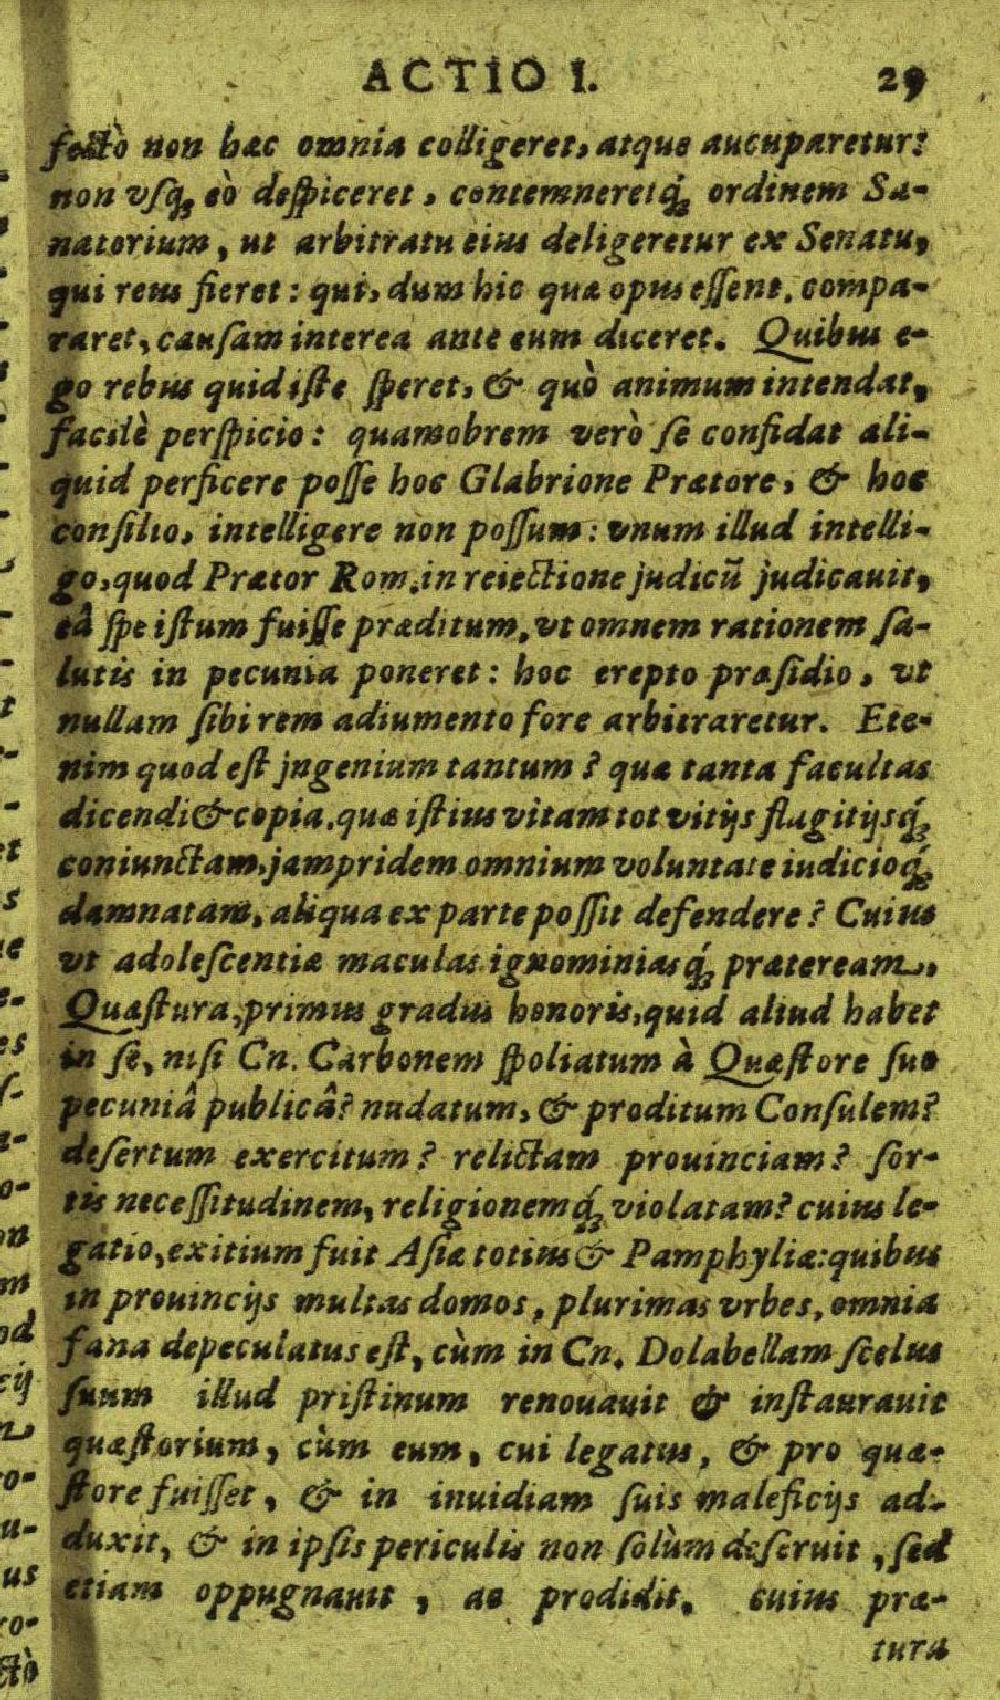 ACTIO I. 29
fectò non hæc omnia colligeret, atque aucuparetur?
non vſq; eò deſpiceret, contemneretq́; ordinem Se-
natorium, ut arbitratu eius deligeretur ex Senatu,
qui reus fieret: qui, dum hic quæ opus eſſent, compa-
raret, cauſam interea ante eum diceret. Quibus e-
go rebus quid iſte ſperet, & quò animum intendat,
facilè perſpicio: quamobrem verò ſe confidat ali-
quid perficere poſſe hoc Glabrione Prætore, & hoc
conſilio, intelligere non poſſum: vnum illud intelli-
go, quod Prætor Rom. in reiectione judicũ judicauit,
eâ ſpe iſtum fuiſſe præditum, vt omnem rationem ſa-
lutis in pecunia poneret: hoc erepto præſidio, vt
nullam ſibi rem adiumento fore arbitraretur. Ete-
nim quod eſt jngenium tantum? quæ tanta facultas
dicendi & copia, quæ iſtius vitam tot vitijs flagitijsq́;
coniunctam, jampridem omnium voluntate iudicioq́;
damnatam, aliqua ex parte poſſit defendere? Cuius
vt adoleſcentiæ maculas ignominiasq́; præteream,
Quæſtura, primus gradus honoris, quid aliud habet
in ſe, niſi Cn. Carbonem ſpoliatum à Quæſtore ſuo
pecuniâ publicâ? nudatum, & proditum Conſulem?
deſertum exercitum? relictam prouinciam? ſor-
tis neceſſitudinem, religionemq́; violatam? cuius le-
gatio, exitium fuit Aſiæ totius & Pamphyliæ: quibus
in prouincijs multas domos, plurimas vrbes, omnia
fana depeculatus eſt, cùm in Cn. Dolabellam ſcelus
ſuum illud priſtinum renouauit & inſtaurauit
quæſtorium, cùm eum, cui legatus, & pro quæ-
ſtore fuiſſet, & in inuidiam ſuis maleficijs ad-
duxit, & in ipſis periculis non ſolùm deſeruit, ſed
etiam oppugnauit, ac prodidit. cuius præ-
tura